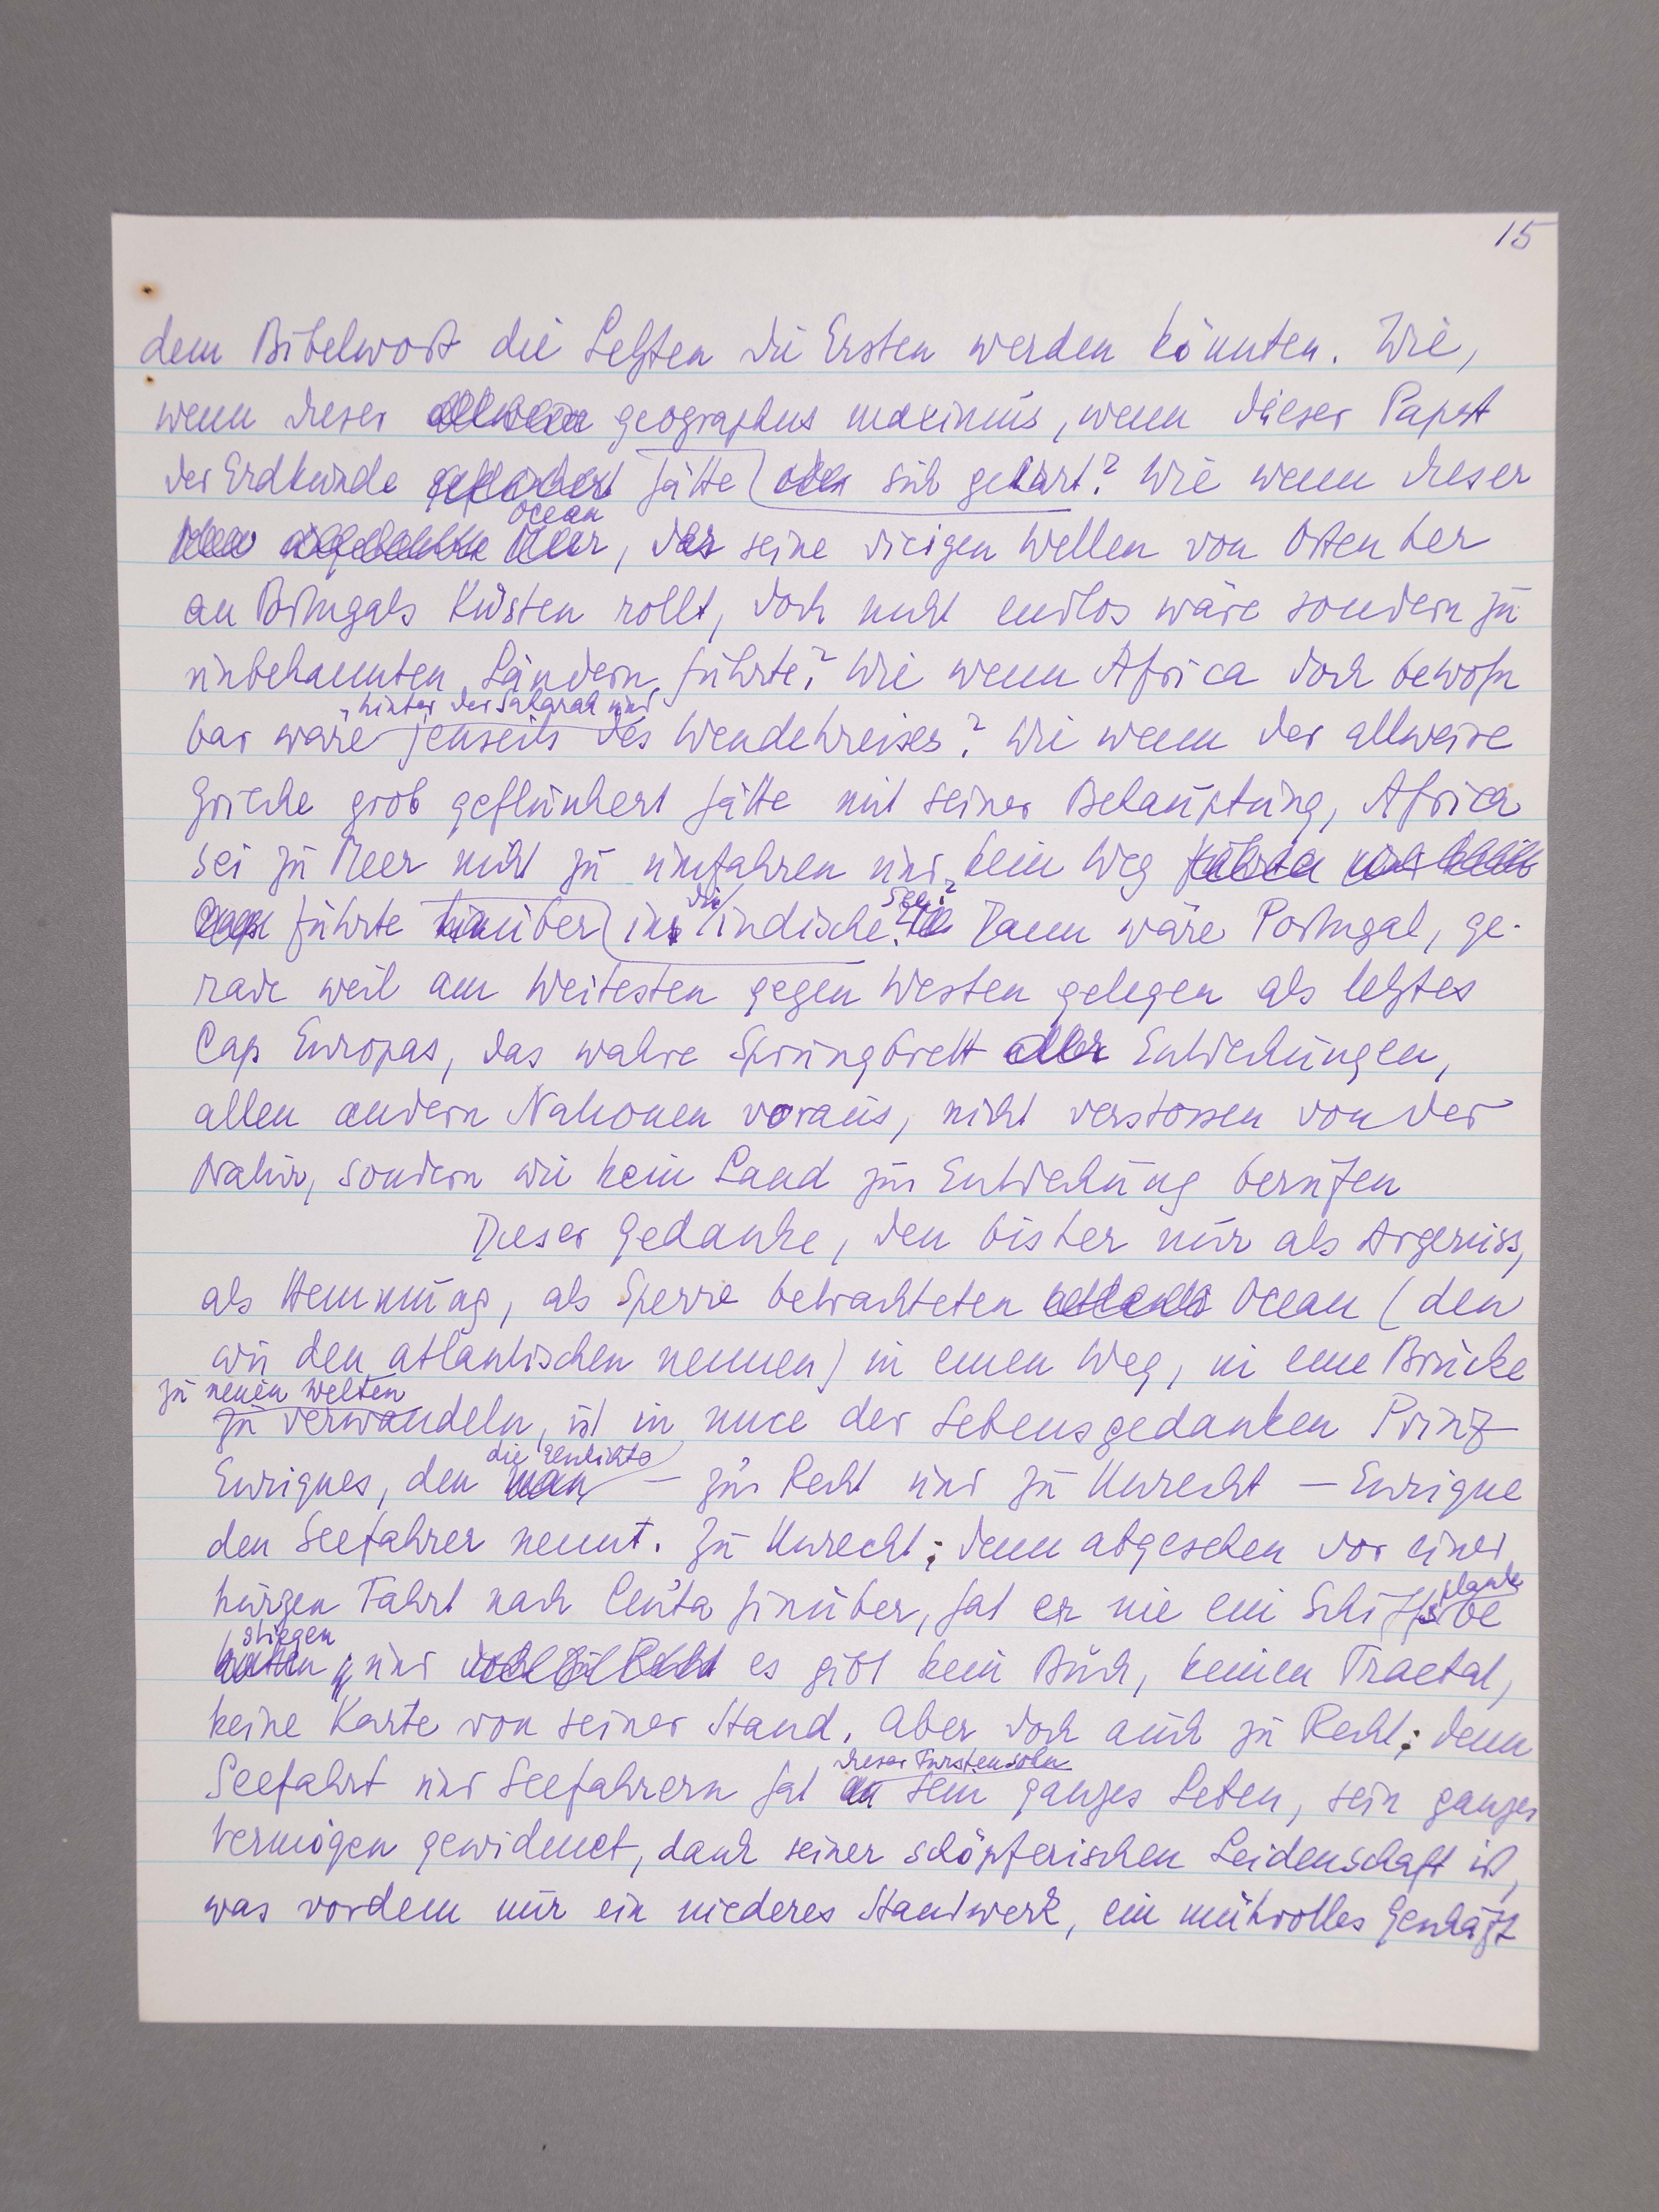 15
dem Bibelwort die Letzten die Ersten werden könnten. Wie,
wenn dieser geographus maximus, wenn dieser Papst
der Erdkunde geflunkert hätte oder sich geirrt? Wie wenn dieser
Ocean
Meer, der seine riesigen Wellen von Osten her
an Portugals Küsten rollt, doch nicht endlos wäre sondern zu
unbekannten Ländern führte? Wie wenn Africa doch bewohn
hinter der Saharah und
bar wäre jenseits des Wendekreises? Wie wenn der allweise
Grieche grob geflunkert hätte mit seiner Behauptung, Africa
sei zu Meer nicht zu umfahren und kein Weg führte
die See?
führte hinüber ins indische. Dann wäre Portugal, ge-
rade weil am Weitesten gegen Westen gelegen als letztes
Cap Europas, das wahre Sprungbrett aller Entdeckungen,
allen andern Nationen voraus, nicht verstossen von der
Natur, sondern wie kein Land zur Entdeckung berufen
Dieser Gedanke, den bisher nur als Argerniss,
als Hemmung, als Sperre betrachteten Ocean (den
wir den atlantischen nennen) in einen Weg, in eine Brücke
zu neuen Welten
zu verwandeln, ist in nuce der Lebensgedanken Prinz
die Geschichte
Enriques, den man – zu Recht und zu Unrecht – Enrique
den Seefahrer nennt. Zu Unrecht; denn abgesehen vor einer
kurzen Fahrt nach Ceuta hinüber, hat er nie ein Schiffs be
planke
stiegen
und es gibt kein Buch, keinen Tractat,
keine Karte von seiner Hand. Aber doch auch zu Recht; denn
dieser Fürstensohn
Seefahrt und Seefahrern hat er sein ganzes Leben, sein ganzes
Vermögen gewidmet, dank seiner schöpferischen Leidenschaft ist,
was vordem nur ein niederes Handwerk, ein mühvolles Geschäft